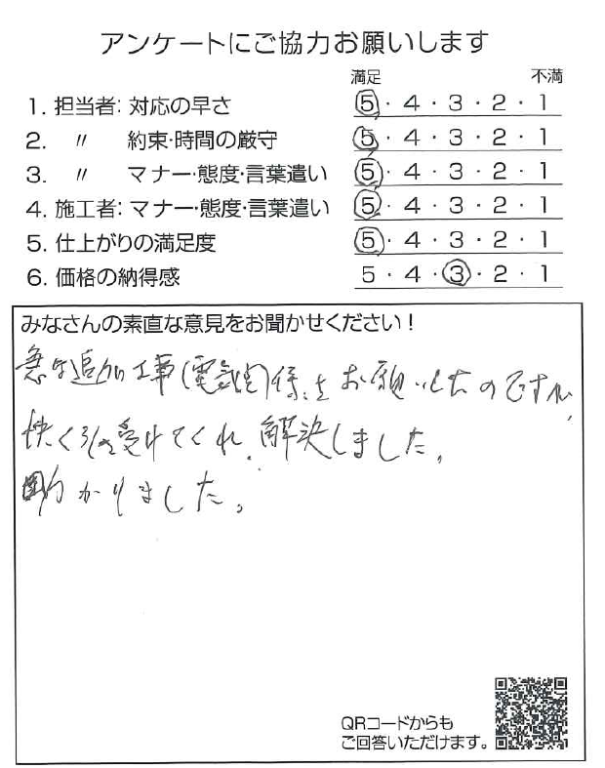 アンケートにご協力お願いします
満足 不満
1. 担当者: 対応の早さ 5・4・3・2・1
2. 〃 約束・時間の厳守 5・4・3・2・1
3. 〃 マナー・態度・言葉遣い 5・4・3・2・1
4. 施工者: マナー・態度・言葉遣い 5・4・3・2・1
5. 仕上がりの満足度 5・4・3・2・1
6. 価格の納得感 5・4・3・2・1
みなさんの素直な意見をお聞かせください！
急な追加工事(電気関係)をお願いしたのですが、
快く引き受けてくれ、解決しました。
助かりました。
QRコードからも
ご回答いただけます。